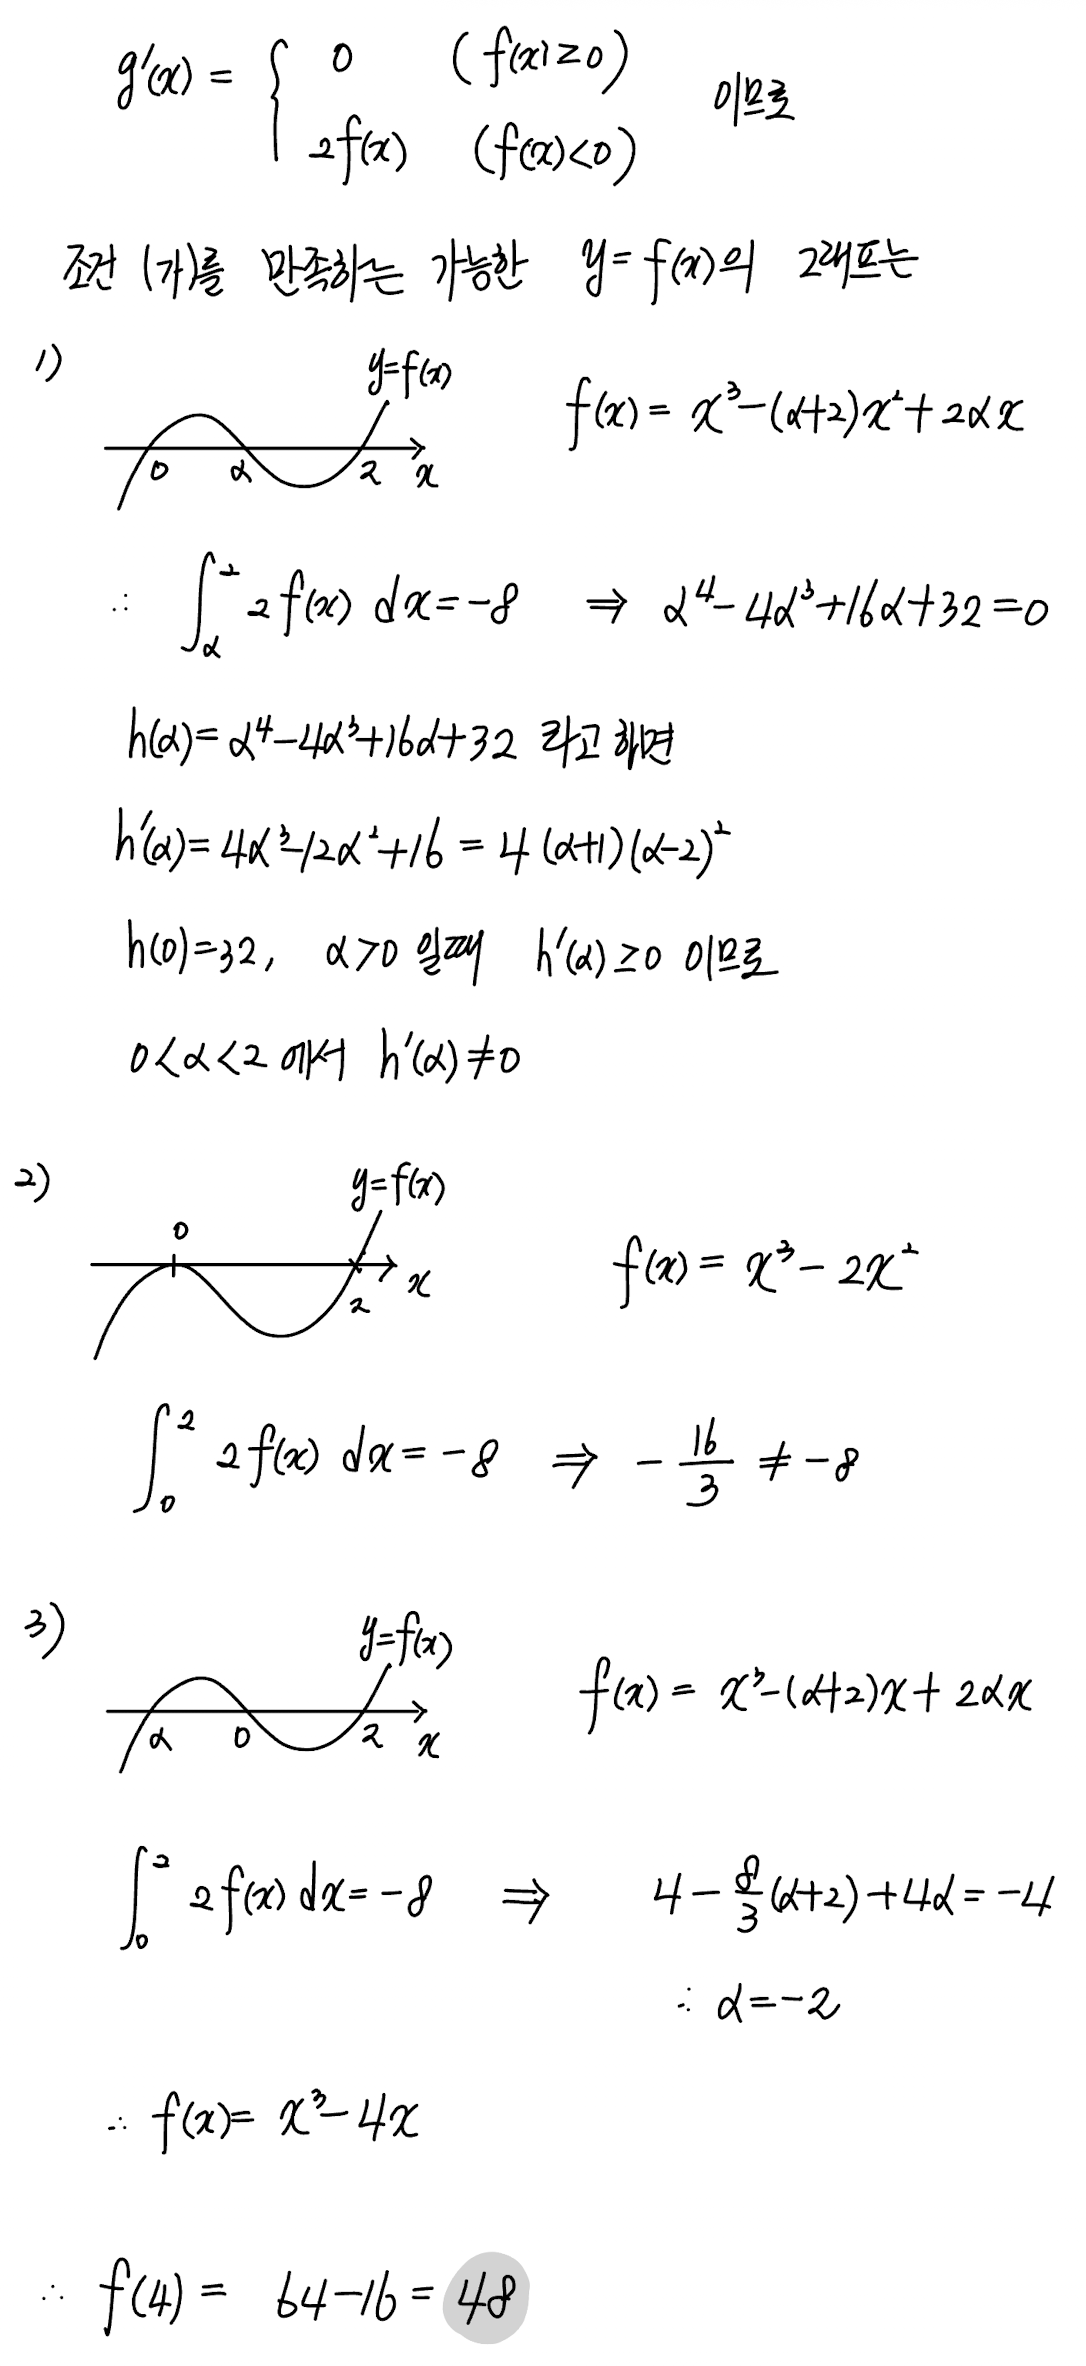 g'(x) = { 0 (f(x) ≥ 0)
2f(x) (f(x) < 0) 이므로
조건 (가)를 만족하는 가능한 y = f(x)의 그래프는
1) y=f(x)
0 α 2 x
f(x) = x³-(α+2)x²+2αx
∴ ∫_α^2 2f(x) dx = -8 ⇒ α⁴-4α³+16α+32=0
h(α)=α⁴-4α³+16α+32 라고 하면
h'(α)=4α³-12α²+16 = 4(α+1)(α-2)²
h(0)=32, α>0 일때 h'(α)≥0 이므로
0<α<2 에서 h'(α)≠0
2) y=f(x)
0 2 x
f(x) = x³-2x²
∫_0^2 2f(x) dx = -8 ⇒ -16/3 ≠ -8
3) y=f(x)
α 0 2 x
f(x) = x³-(α+2)x+2αx
∫_0^2 2f(x) dx = -8 ⇒ 4-8/3(α+2)+4α=-4
∴ α=-2
∴ f(x) = x³-4x
∴ f(4) = 64-16 = 48